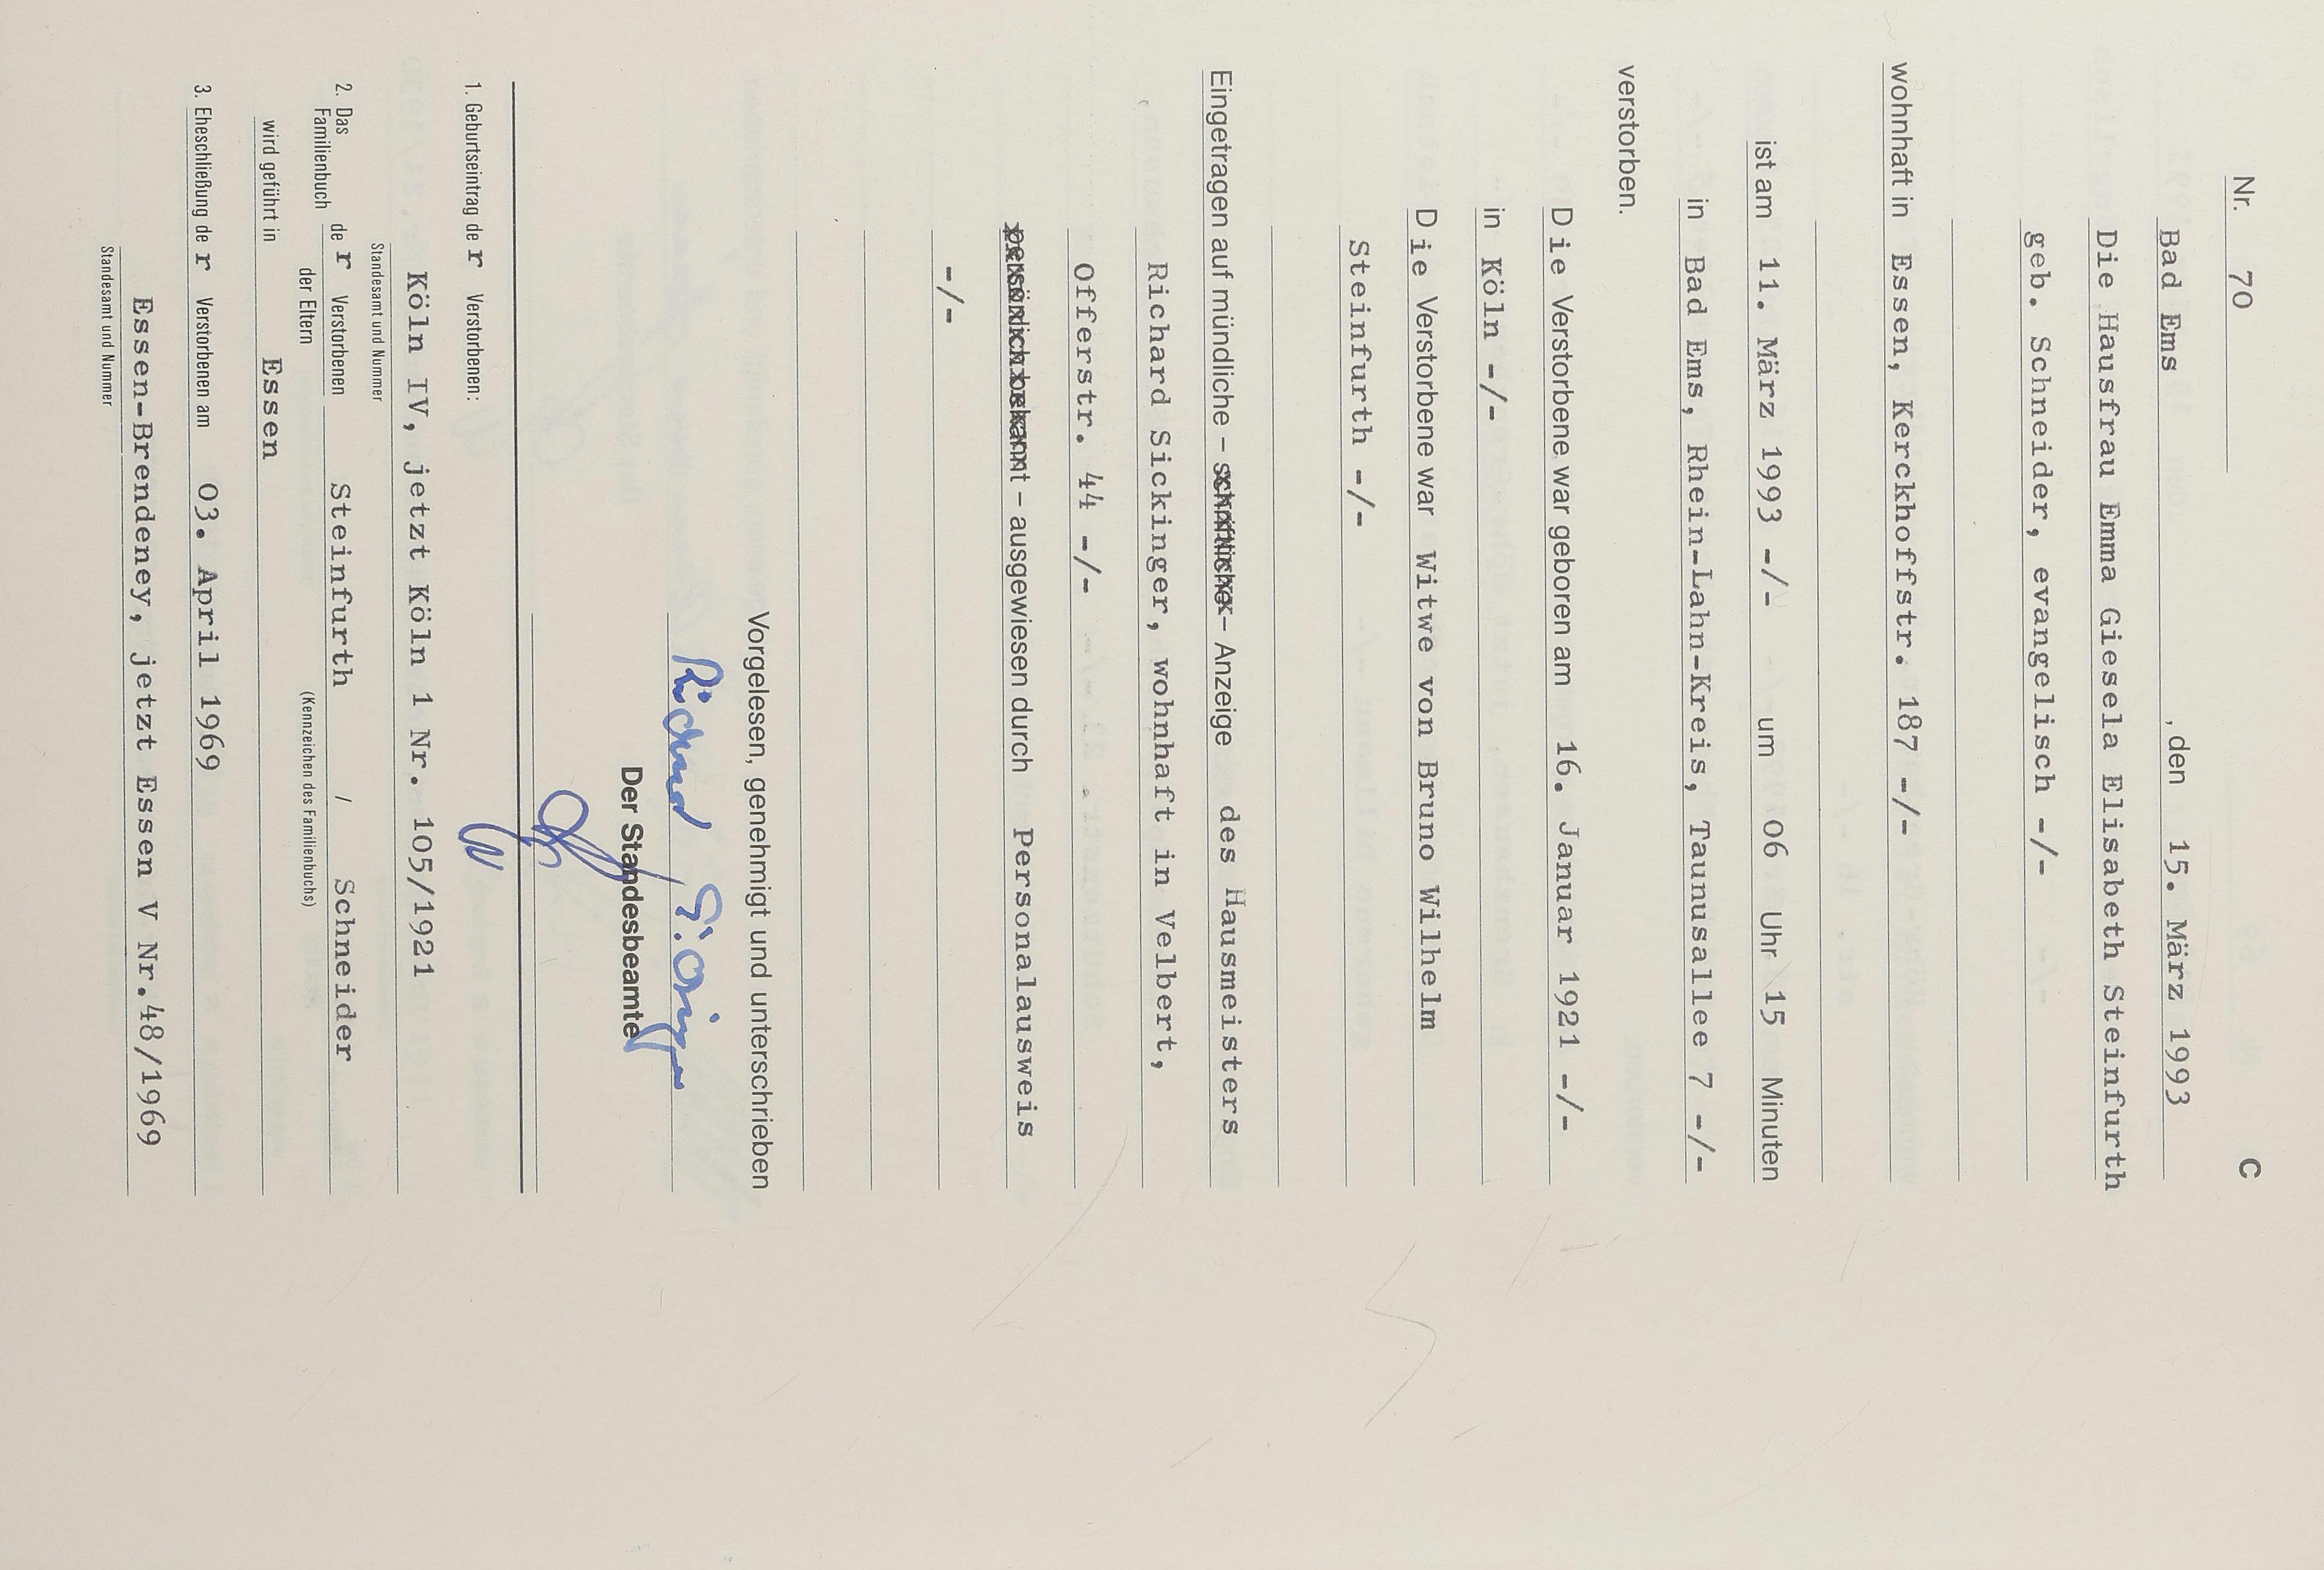 C
Nr. 70
Bad Ems , den 15. März 1993
Die Hausfrau Emma Giesela Elisabeth Steinfurth
geb. Schneider, evangelisch -/-
wohnhaft in Essen, Kerckhoffstr. 187 -/-
ist am 11. März 1993 -/- um 06 Uhr 15 Minuten
in Bad Ems, Rhein-Lahn-Kreis, Taunusallee 7 -/-
verstorben.
Die Verstorbene war geboren am 16. Januar 1921 -/-
in Köln -/-
Die Verstorbene war Witwe von Bruno Wilhelm
Steinfurth -/-
Eingetragen auf mündliche – schriftliche – Anzeige des Hausmeisters
Richard Sickinger, wohnhaft in Velbert,
Offerstr. 44 -/-
persönlich bekannt – ausgewiesen durch Personalausweis
-/-
Vorgelesen, genehmigt und unterschrieben
Richard
Der Standesbeamte
1. Geburtseintrag de r Verstorbenen:
Köln IV, jetzt Köln 1 Nr. 105/1921
Standesamt und Nummer
2. Das Familienbuch de r Verstorbenen Steinfurth / Schneider
der Eltern (Kennzeichen des Familienbuchs)
wird geführt in Essen
3. Eheschließung de r Verstorbenen am 03. April 1969
Essen-Brendeney, jetzt Essen V Nr.48/1969
Standesamt und Nummer